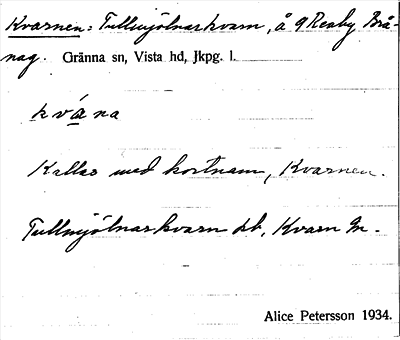 Kvarnen: Tullmjölnarkvarn, å 9 Reaby Brå-
nag. Gränna sn, Vista hd, Jkpg. l.
kvána
Kallas med kortnamn, Kvarnen.
Tullmjölnarkvarn Kvarn
Alice Petersson 1934.